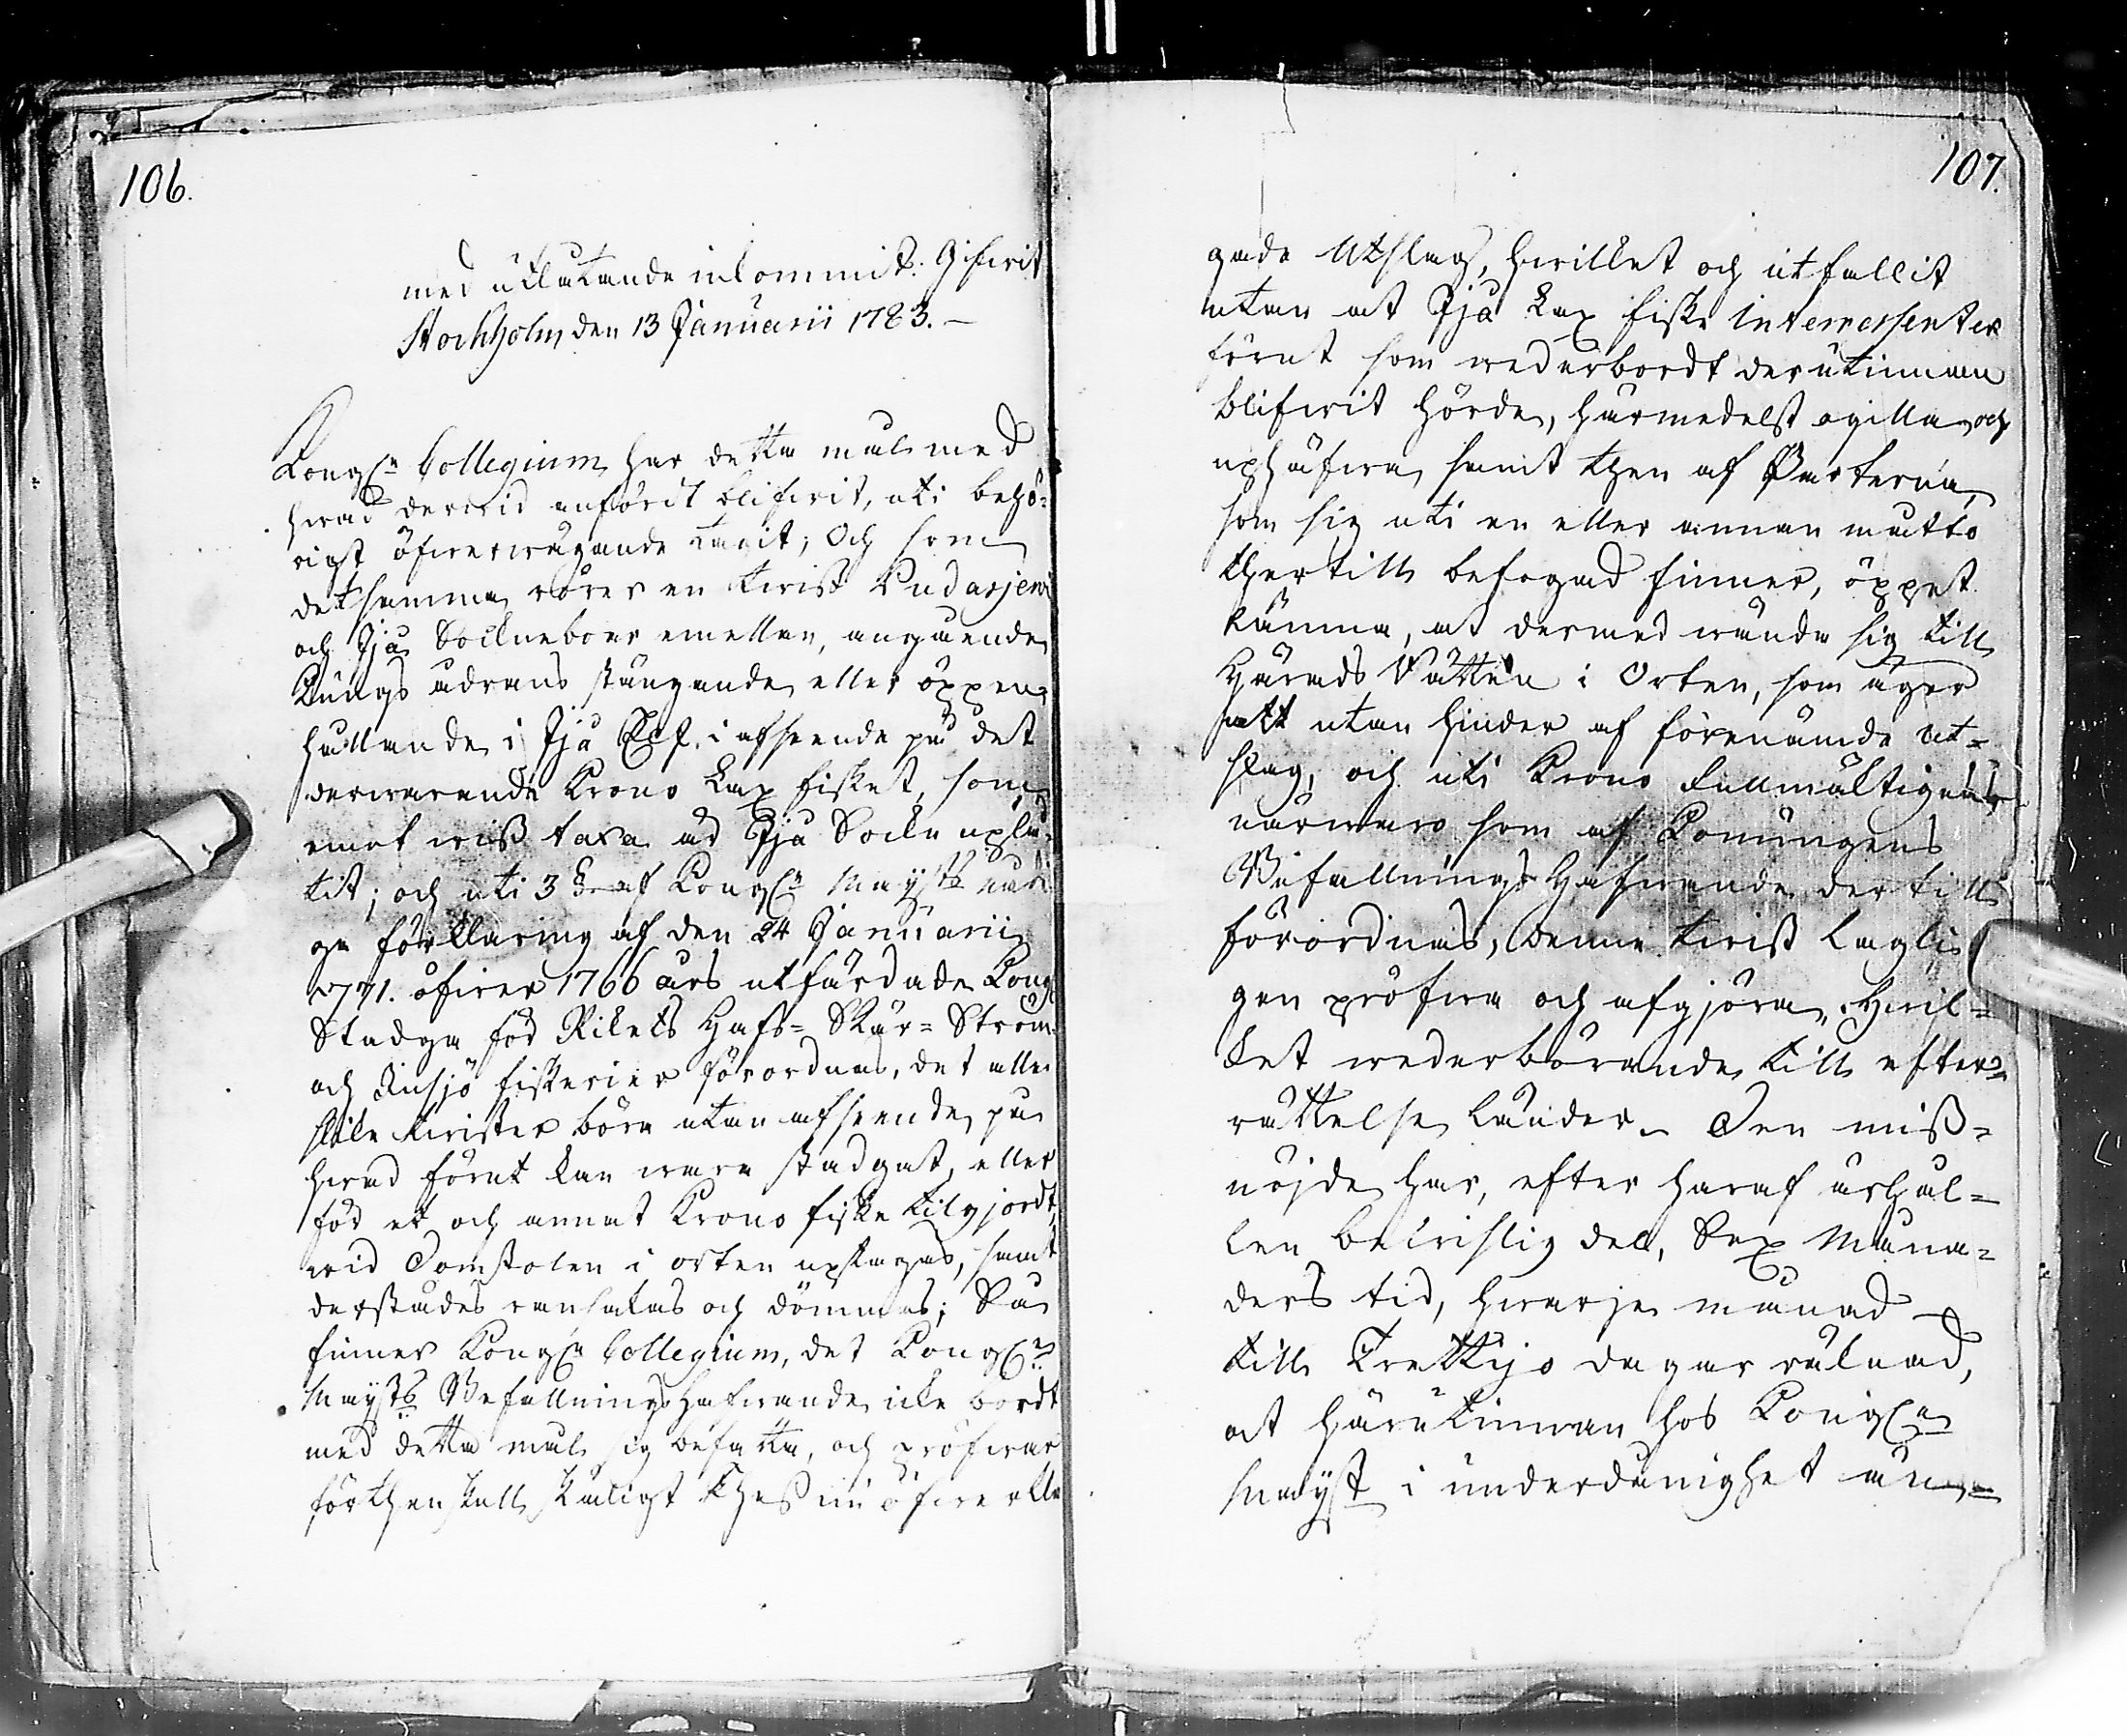 106.
med utlåtande inkommit. Gifwit
Stockholm den 13 Januarii 1783. —
Kongl:n Collegium har detta mål med
hwad derwid anfördt blifwit, uti behö-
rigt öfwerwägande tagit; Och som
det samma rörer en twist Pudasjerwi
och Ijå Sockneboer emellan, angående
Kungs ådrans stängande eller öppen-
hållande i Ijå Elf, i afseende på det
derwarande Krono Lax fisket, som
emot wiss taxa åt Ijå Sockn uplå-
tit; och uti 3 § af Kongl:n Mayst:s nåd-
ga förklaring af den 24 Januarii
1771. öfwer 1766 års utfärdade Kongl
Stadga för Rikets Hafs- Skär- Ström-
och Insjö fiskerier förordnas, det alla
slika twister böra utan afseende på
hwad förut kan wara stadgat, eller
för et och annat Krono fiske tilgjordt,
wid Domstolen i orten uptagas, samt
derstädes ransakas och dömmas; Så
finner Kongl:n Collegium, det Kongl:n
Mayst:s Befallningshafwande icke bordt
med detta mål sig befatta, och pröfwar
förthenskull skäligt thess nu öfwerkla-
107.
gade Utslag, hwilket och utfallit
utan at Ijå Lax fiske Interressenter
förut som wederbordt derutinnan
blifwit hörde, härmedelst ogilla och
uphäfwa, samt then af Parterna,
som sig uti en eller annan måtto
thertill befogad finner, öppet
lämna, at dermed wända sig till
Härads Rätten i Orten, som äger
att utan hinder af förenämde ut-
slag, och uti Krono Fullmäktigens
närwaro som af Konungens
Befallningshafwande dertill
förordnas, denne twist lagli-
gen pröfwa och afgjöra, Hwil-
ket wederbörande till efter-
rättelse länder. Den miss-
nöjde har, efter häraf ärhål-
len bewislig del, Sex Måna-
ders tid, hwarje månad
till Trettijo dagar räknad,
at härutinnan hos Kongl:n
Mayst i underdånighet än-